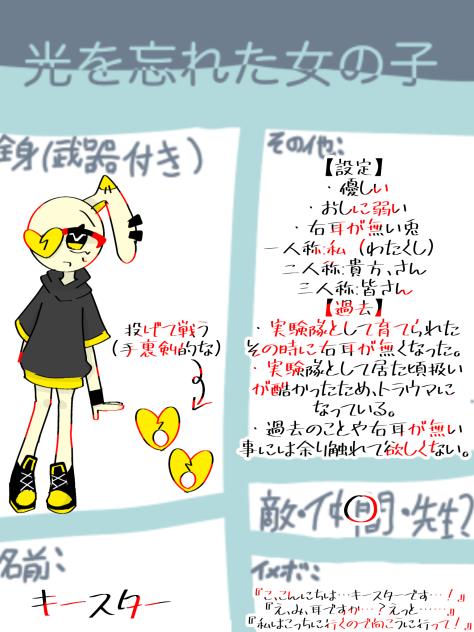 光を忘れた女の子
全身(武器付き)
投げて戦う
(手裏剣的な)
その他:
【設定】
・優しい
・おしに弱い
・右耳が無い兎
一人称:私 (わたくし)
二人称:貴方、さん
三人称:皆さん
【過去】
・実験隊として育てられた
その時に右耳が無くなった。
・実験隊として居た頃扱い
が酷かったため、トラウマに
なっている。
・過去のことや右耳が無い
事には余り触れて欲しくない。
敵・仲間・先生?
名前:
キースター
イメボ:
『こ、こんにちは…キースターです…!』
『え、み、耳ですか…?えっと……』
『私はこっちに行くので向こうに行って!』